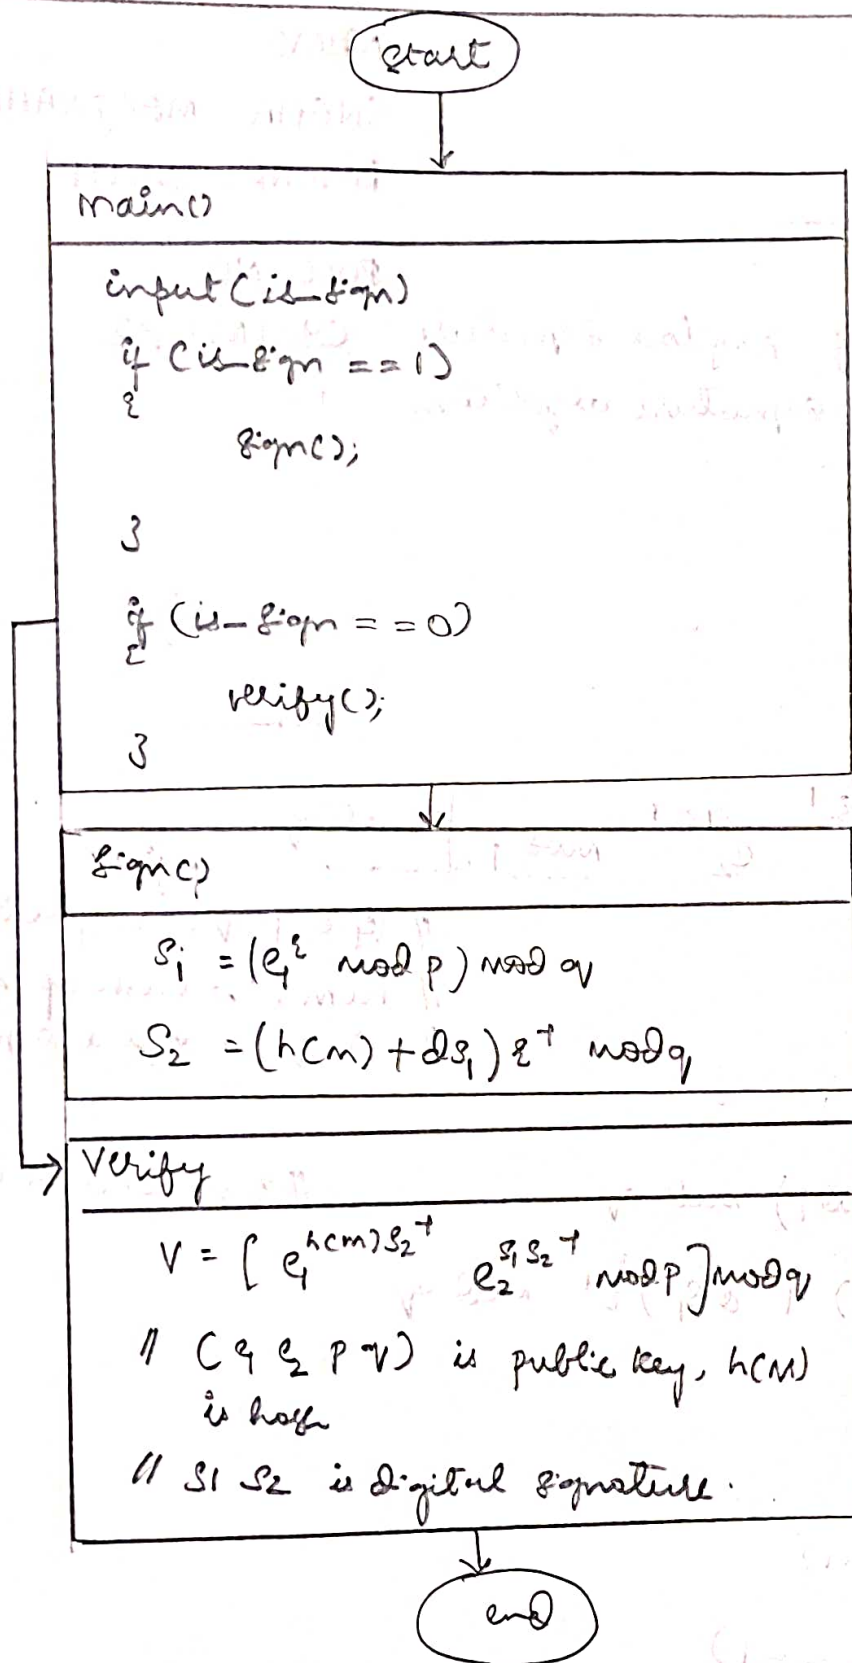 start
main()
input (is_sign)
if (is_sign == 1)
{
sign();
}
if (is_sign == 0)
{
verify();
}
sign()
S₁ = (e₁^r mod p) mod q
S₂ = (h(m) + ds₁) r⁻¹ mod q
Verify
V = [e₁^h(m)S₂⁻¹ e₂^S₁S₂⁻¹ mod p] mod q
// (e₁ e₂ p q) is public key, h(M)
is hash
// S1 S2 is digital signature.
end